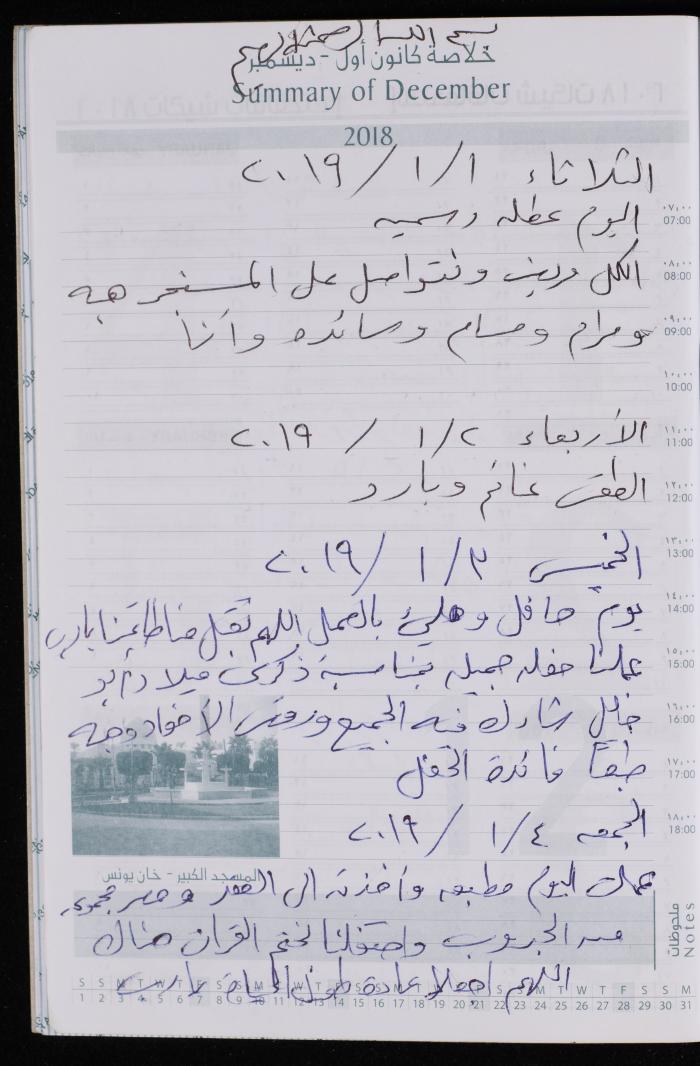 بسم الله الرحمن الرحيم
خلاصة كانون أول - ديسمبر
Summary of December
2018
الثلاثاء ١ / ١ / ٢٠١٩
٠٧:٠٠
07:00
اليوم عطله رسميه
٠٨:٠٠
08:00
الكل ونتواصل على
٠٩:٠٠
09:00
ومرام وسائده وأنا
١٠:٠٠
10:00
١١:٠٠
11:00
الأربعاء ٢ / ١ / ٢٠١٩
١٢:٠٠
12:00
الطقس غائم وبارد
١٣:٠٠
13:00
الخميس ٣ / ١ / ٢٠١٩
١٤:٠٠
14:00
يوم حافل ومليء بالعمل اللهم تقبل منا طاعتنا يا رب
١٥:٠٠
15:00
عملنا حفله جميله بمناسبة ذكرى ميلاد
١٦:٠٠
16:00
شارك فيه الجميع
١٧:٠٠
17:00
طبعاً الحفل
١٨:٠٠
18:00
الجمعه ٤ / ١ / ٢٠١٩
المسجد الكبير - خان يونس
عملت اليوم وأخذته الى مجموعه
ملحوظات
Notes
من واحتفلنا لختم القرآن هناك
اللهم اجعلها عادة طول الحياة يا رب
S S M T W T F S S M T W T F S S M T W T F S S M T W T F S S M
1 2 3 4 5 6 7 8 9 10 11 12 13 14 15 16 17 18 19 20 21 22 23 24 25 26 27 28 29 30 31